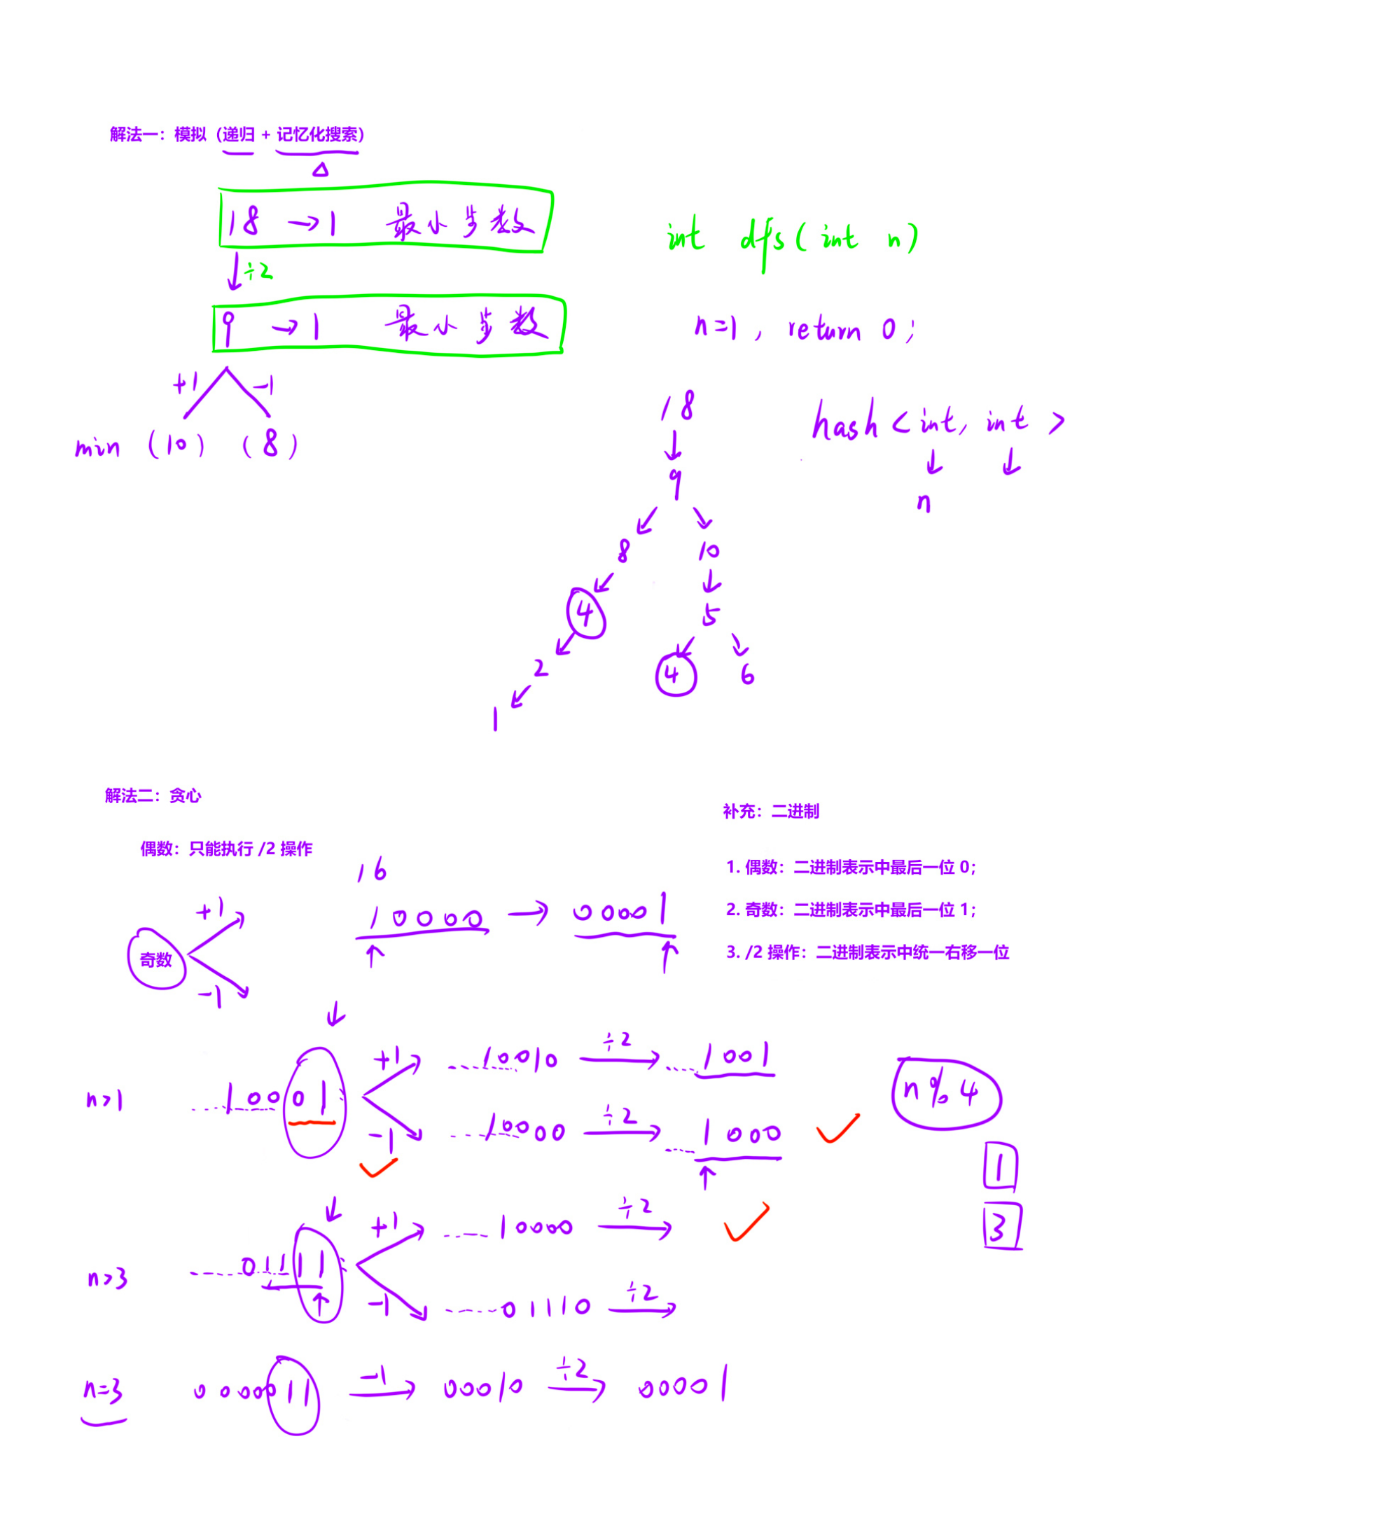 解法一：模拟（递归 + 记忆化搜索）
18 → 1 最小步数
÷2
9 → 1 最小步数
+1 -1
min (10) (8)
int dfs(int n)
n=1, return 0;
hash<int, int>
n
18
9
8 10
4 5
2 4 6
1
解法二：贪心
偶数：只能执行 /2 操作
奇数
+1
-1
16
10000 → 00001
补充：二进制
1. 偶数：二进制表示中最后一位 0；
2. 奇数：二进制表示中最后一位 1；
3. /2 操作：二进制表示中统一右移一位
n>1 ......10001
+1 ......10010 ÷2 ......1001
-1 ......10000 ÷2 ......1000
n%4
1
3
n>3 ......01111
+1 ......10000 ÷2
-1 ......01110 ÷2
n=3 0000011 -1 00010 ÷2 00001